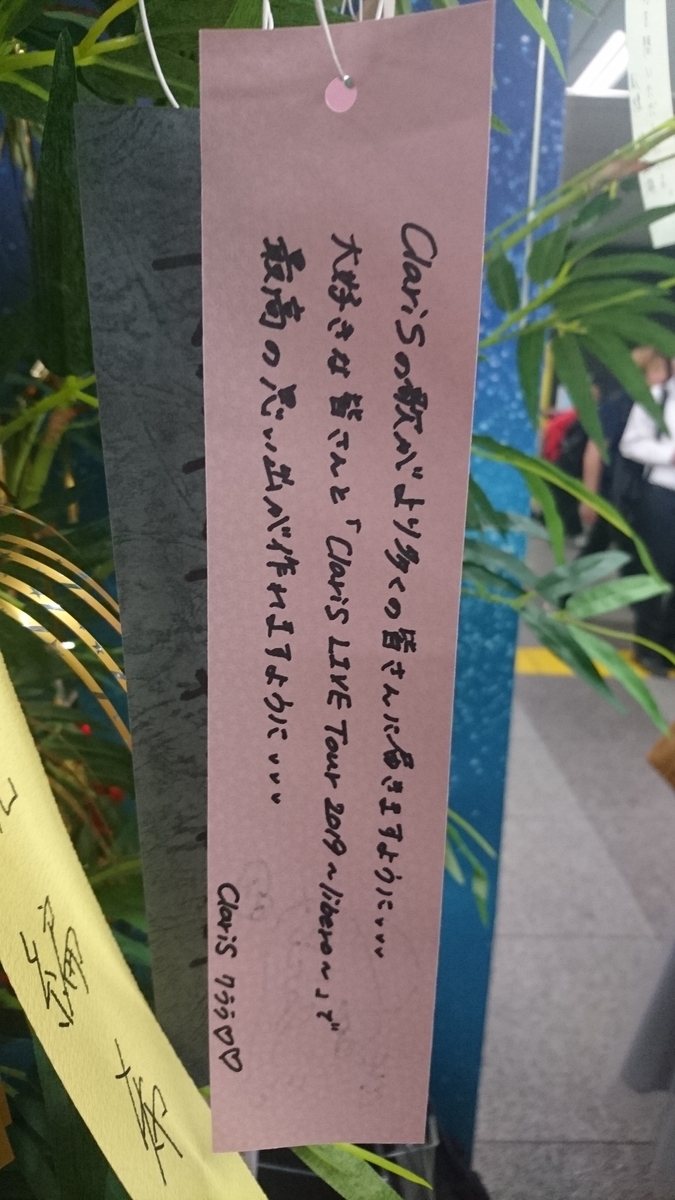 ClariSの歌がより多くの皆さんに届きますように...
大好きな皆さんと「ClariS LIVE Tour 2019〜libero〜」で
最高の思い出が作れますように...
ClariS クララ♡♡